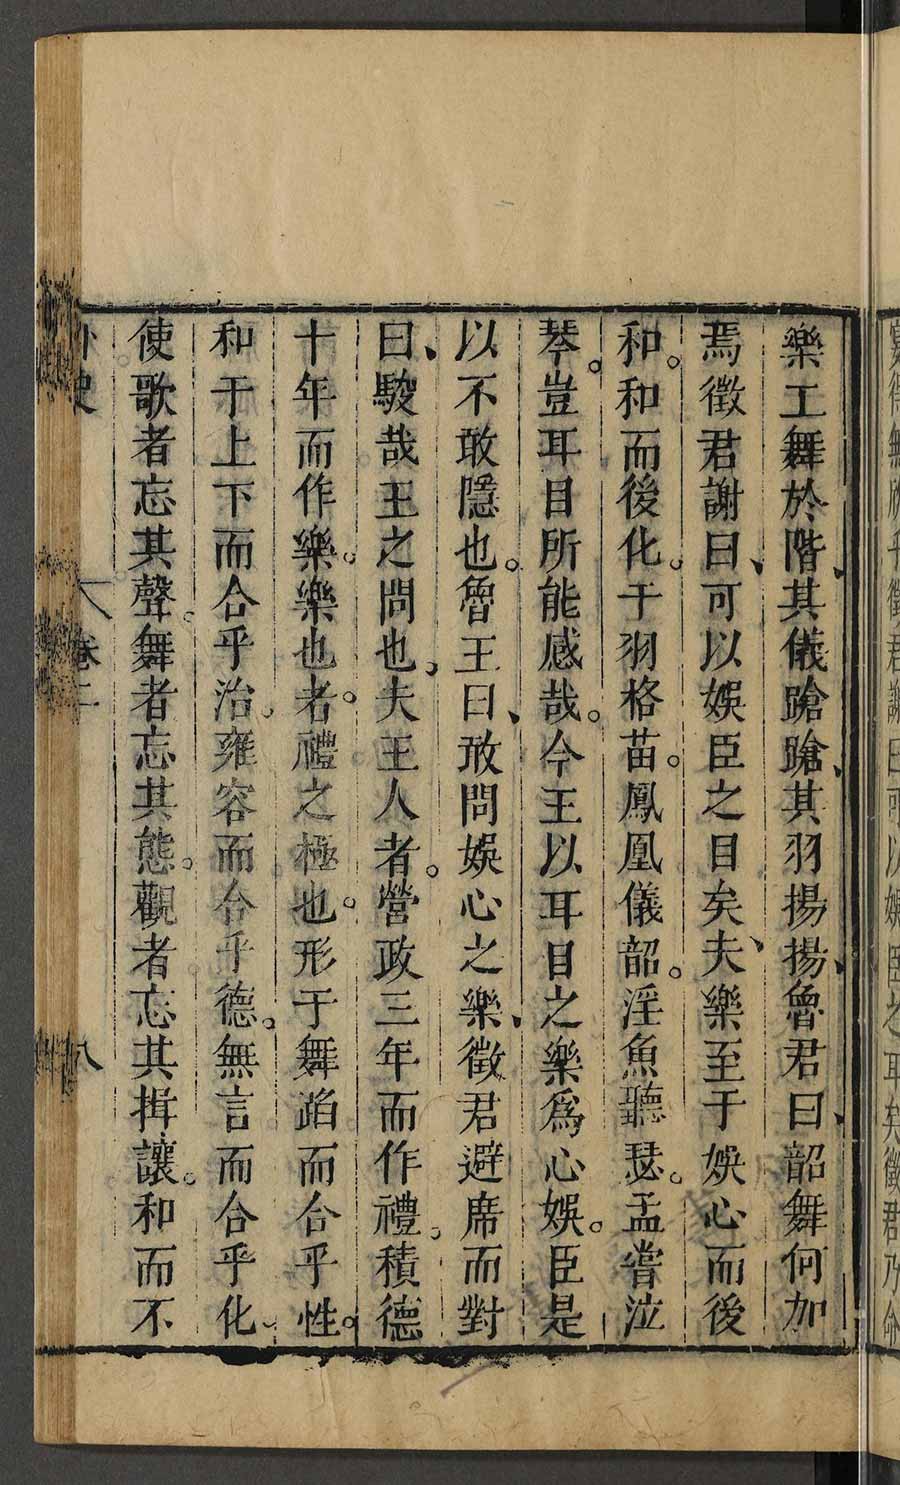 樂工舞於階、其儀蹌蹌、其羽揚揚、魯君曰、韶舞何加
焉徵君謝曰、可以娛臣之目矣、夫樂至于娛心而後
和。和而後化。干羽格苗。鳳凰儀韶。淫魚聽瑟。孟嘗泣
琴。豈耳目所能感哉。今王以耳目之樂爲心娛。臣是
以不敢隱也。魯王曰、敢問娛心之樂、徵君避席而對
曰、駿哉王之問也、夫王人者。營政三年而作禮。積德
十年而作樂。樂也者。禮之極也。形于舞蹈而合乎性。
和于上下而合乎治。雍容而合乎德。無言而合乎化。
使歌者忘其聲。舞者忘其態。觀者忘其揖讓。和而不
外史
卷二
八